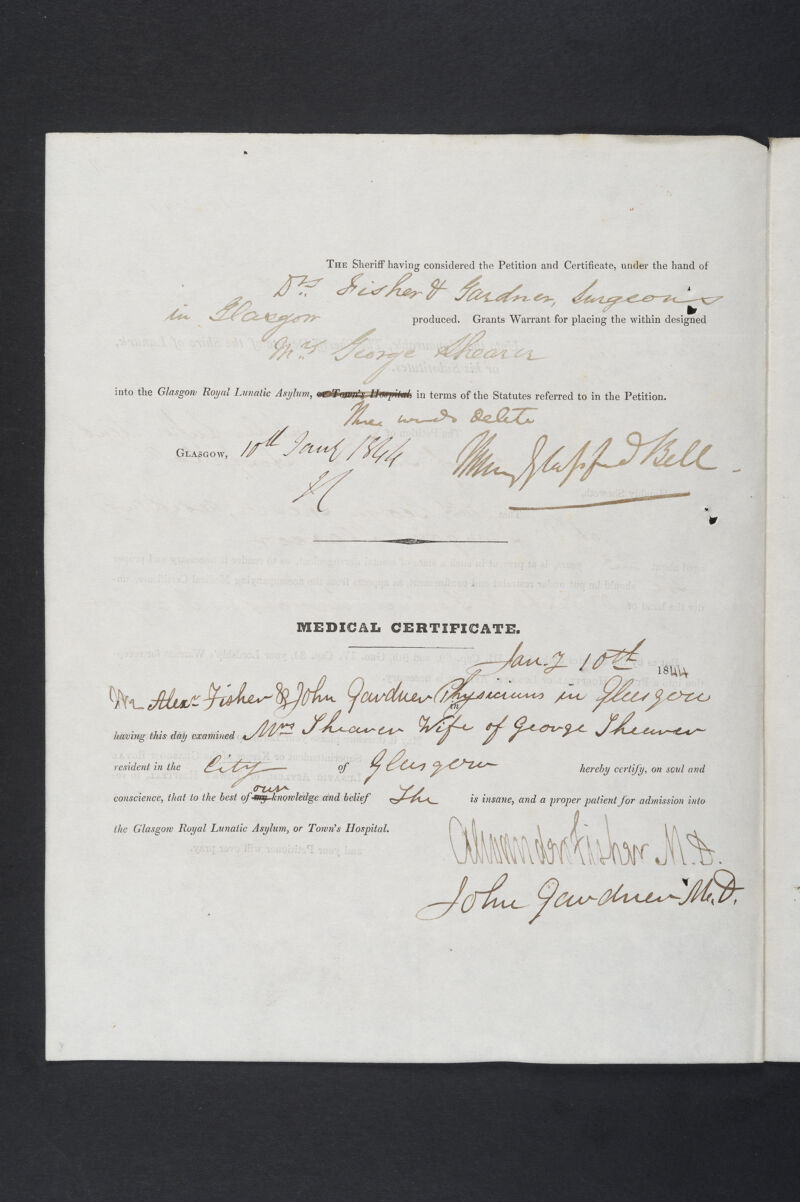 THE Sheriff having considered the Petition and Certificate, under the hand of
Drs. Fisher & Gardner, Surgeons
in Glasgow produced. Grants Warrant for placing the within designed
Mrs George Shearer
into the Glasgow Royal Lunatic Asylum, or Town's Hospital in terms of the Statutes referred to in the Petition.
Three words delete
GLASGOW, 10th Jany 1844 Henry Glassford Bell
MEDICAL CERTIFICATE.
Jany 10th 1844
We Alexr Fisher & John Gardner Physicians in Glasgow
having this day examined Mrs Shearer Wife of George Shearer
resident in the City of Glasgow hereby certify, on soul and
conscience, that to the best of my our knowledge and belief She is insane, and a proper patient for admission into
the Glasgow Royal Lunatic Asylum, or Town's Hospital.
Alexander Fisher M.D.
John Gardner M.D.